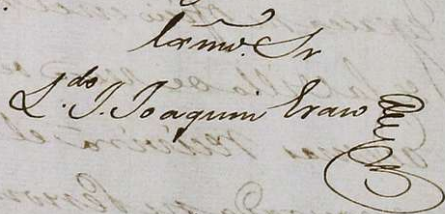 Exmo. Sr
L.do J. Joaquin Eraso